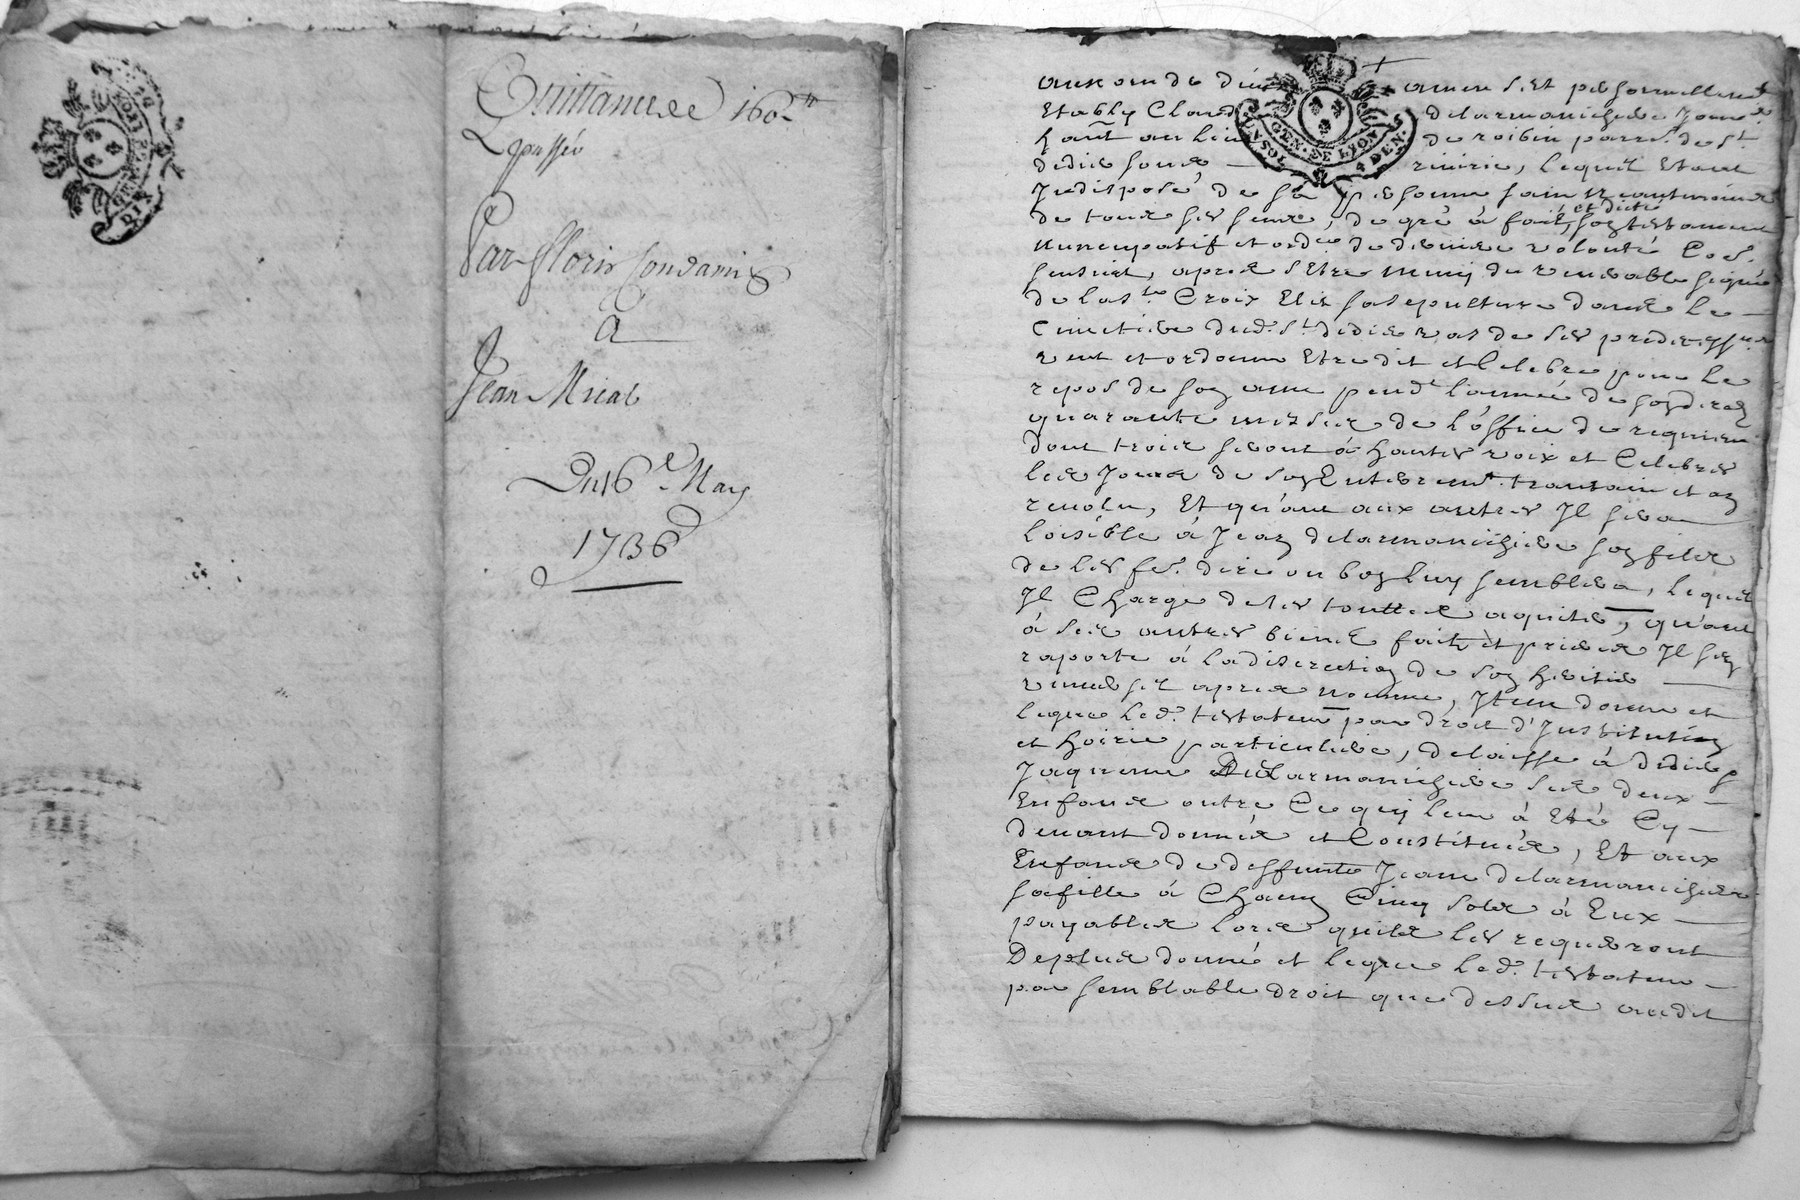 Quittance de 160ᵗᵗ
passée
Par floris Condamin
A
Jean Micol
Du 16ᵉ May
1736
GEN. DE LYON
UN SOL 4 DEN.
au nom de dieu amen s'est personnellemᵗ
Etably Claude delarmanichere Jour
hant au lieu de roisin parrˢ. de Sᵗ
didie sous riverie, lequel Etant
Indisposé de sa personne sain neantmoins
de tous ses sens, de gré à fait, et dicté son testament
nuncupatif et ordᶜᵉ de derniere volonté Co.
sensuit, apres s'etre muny du venerable signe
de la sᵗᵉ Croix Elit sa sepulture dans le
Cimetiere dud. sᵗ didie vas de ses predecess.
veut et ordonne Etre dit et Celebré pour le
repos de son ame pendᵗ l'année de son decez
quarante messes de l'office de requiem
dont trois seront à hautes voix et Celebrés
les Jours de son Enterremᵗ. trantain et an
revolu, Et qu'ant aux autres Il sera
loisible à Jean delarmanichere son fils
de les fᵉ. dire ou bon luy semblera, lequel
Il Charge de les touttes aquiter, qu'ant
à ses autres biens faits et prieres Il s'en
raporte à la discretion de son heritier
universel apres nommé, Item donne et
legue led. testateur par droit d'Institution
et hoirie particuliere, delaisse à didier
Jaqueme delarmanichere ses deux
Enfans outre Ce quy leur à Eté Cy
devant donnés et Constitués, Et aux
Enfans de deffunte Jeanne delarmanichere
sa fille à Chacun Cinq sols à Eux
payables lors quils les requeront
De plus donne et legue led. testateur
par semblable droit que dessus audit